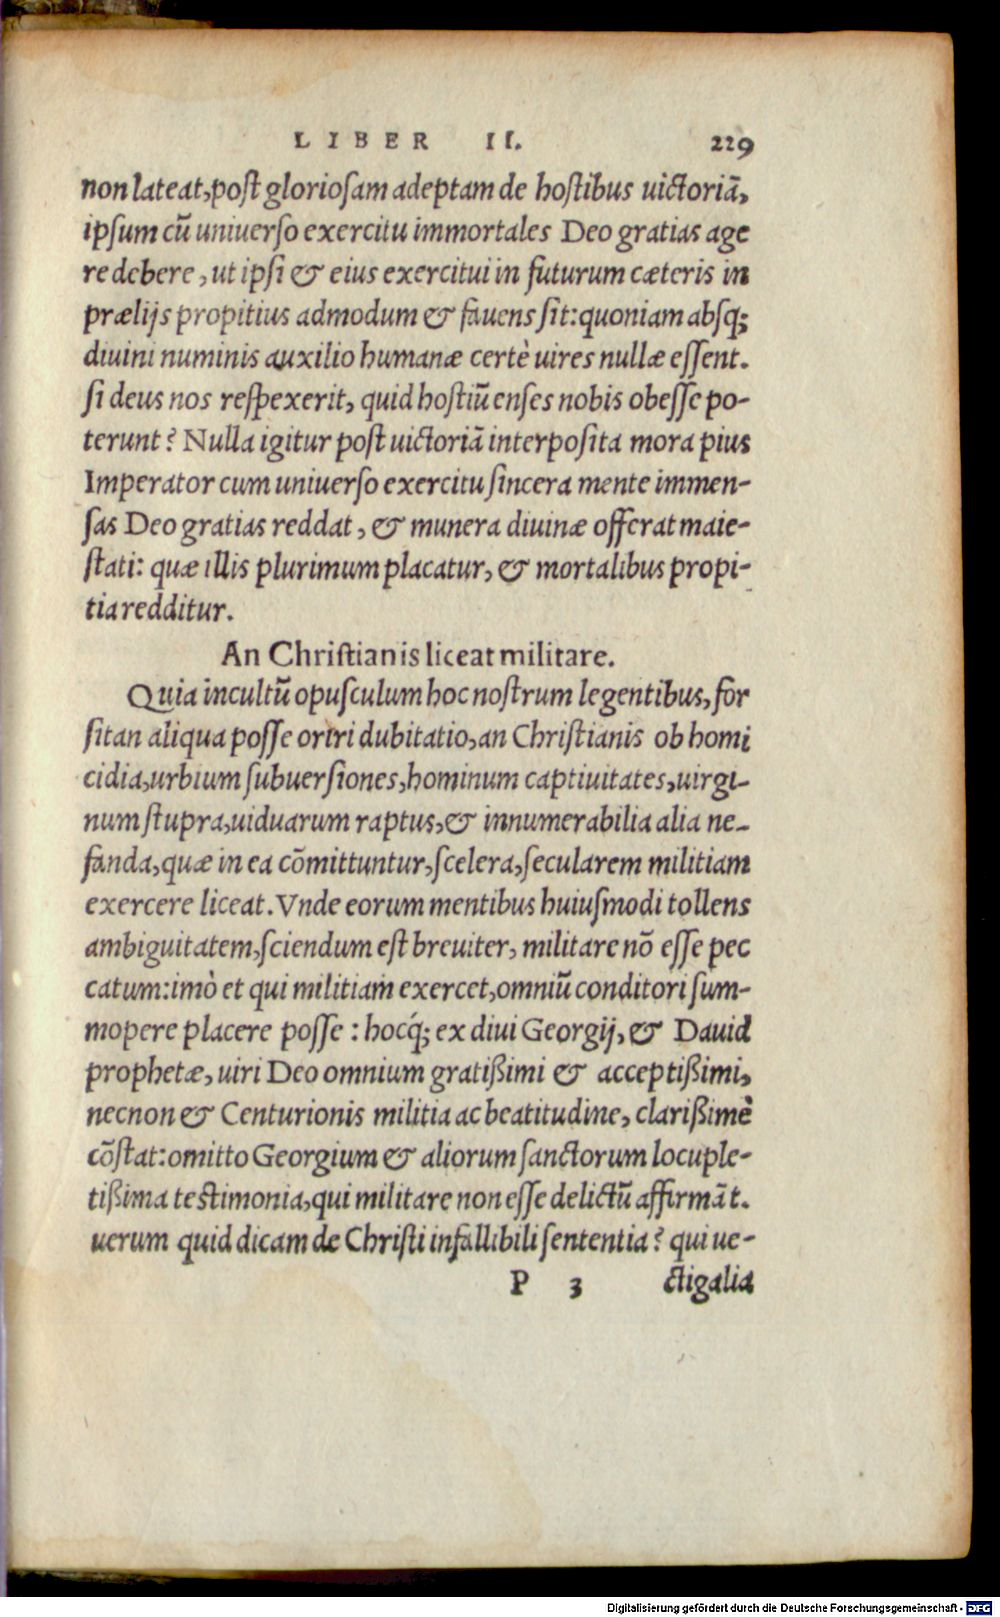 LIBER II. 229
non lateat, post gloriosam adeptam de hostibus uictoriā,
ipsum cū uniuerso exercitu immortales Deo gratias age
re debere, ut ipsi & eius exercitui in futurum cæteris in
prælijs propitius admodum & fauens sit: quoniam absq;
diuini numinis auxilio humanæ certè uires nullæ essent.
si deus nos respexerit, quid hostiū enses nobis obesse po-
terunt? Nulla igitur post uictoriā interposita mora pius
Imperator cum uniuerso exercitu sincera mente immen-
sas Deo gratias reddat, & munera diuinæ offerat maie-
stati: quæ illis plurimum placatur, & mortalibus propi-
tia redditur.
An Christianis liceat militare.
Quia incultū opusculum hoc nostrum legentibus, for
sitan aliqua posse oriri dubitatio, an Christianis ob homi
cidia, urbium subuersiones, hominum captiuitates, uirgi-
num stupra, uiduarum raptus, & innumerabilia alia ne-
fanda, quæ in ea cōmittuntur, scelera, secularem militiam
exercere liceat. Vnde eorum mentibus huiusmodi tollens
ambiguitatem, sciendum est breuiter, militare nō esse pec
catum: imò et qui militiam exercet, omniū conditori sum-
mopere placere posse: hocq́; ex diui Georgij, & Dauid
prophetæ, uiri Deo omnium gratißimi & acceptißimi,
necnon & Centurionis militia ac beatitudine, clarißimè
cōstat: omitto Georgium & aliorum sanctorum locuple-
tißima testimonia, qui militare non esse delictū affirmāt.
uerum quid dicam de Christi infallibili sententia? qui ue-
P 3 ctigalia
Digitalisierung gefördert durch die Deutsche Forschungsgemeinschaft - DFG